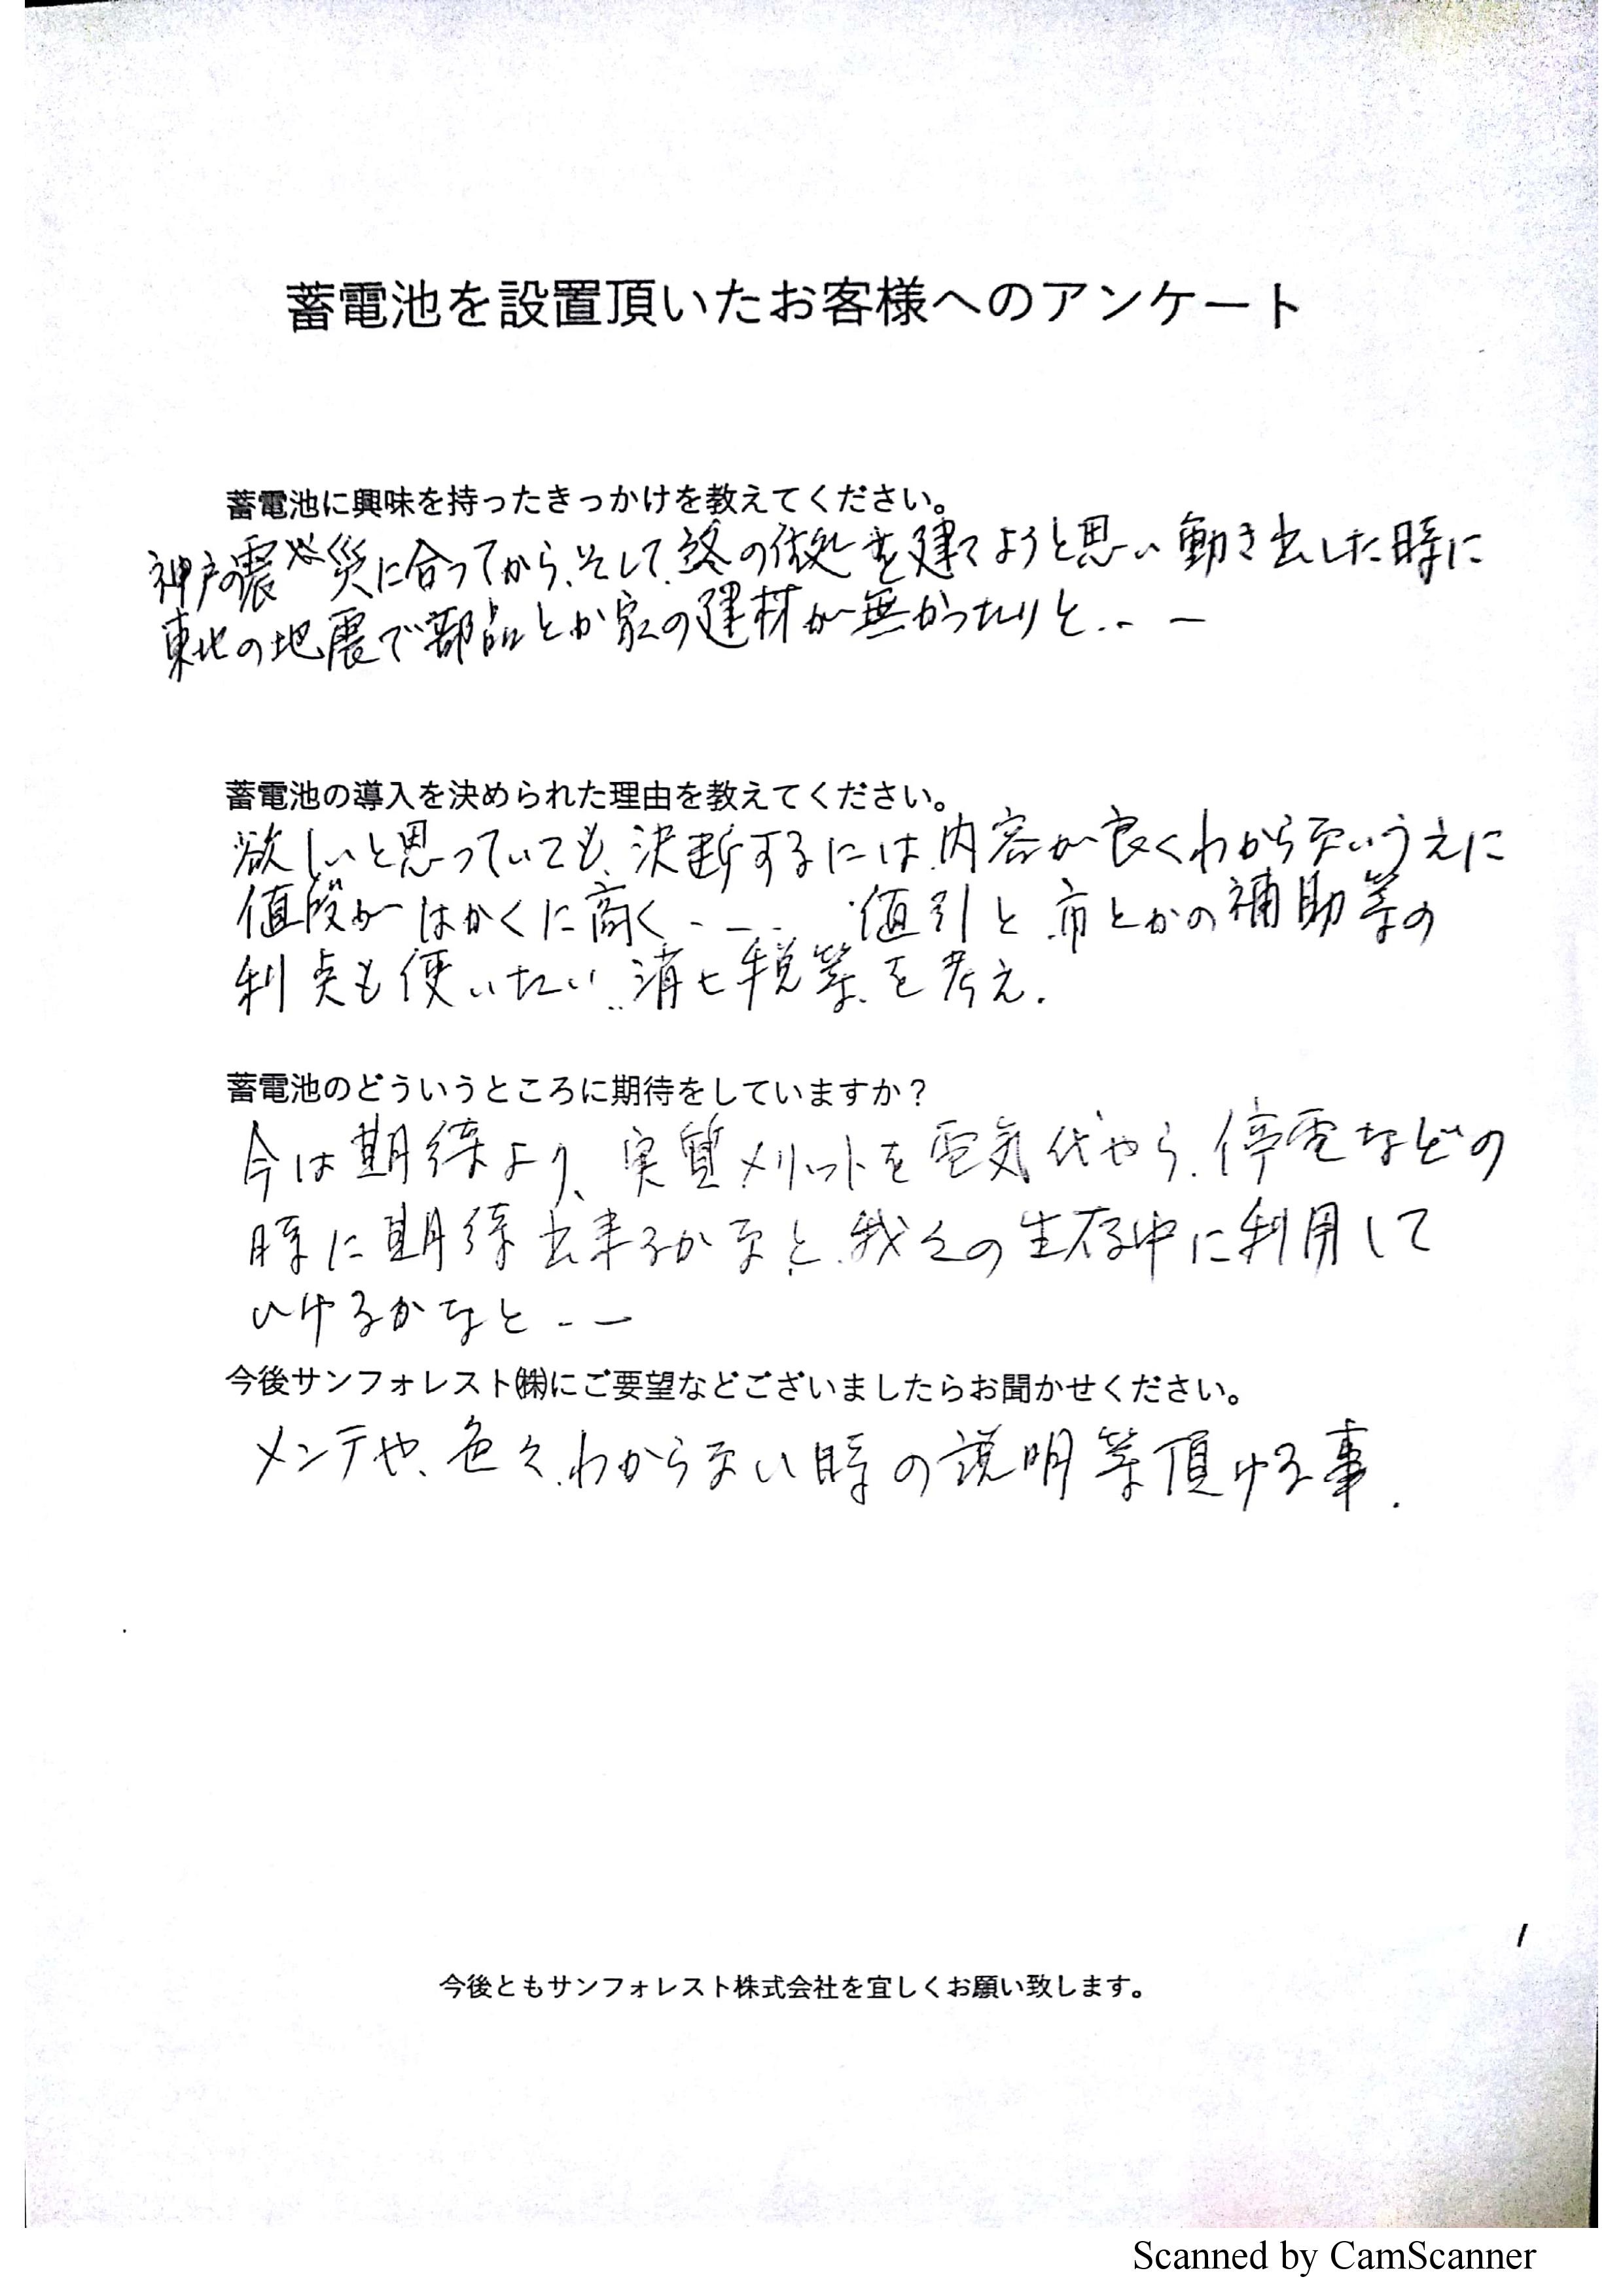 蓄電池を設置頂いたお客様へのアンケート
蓄電池に興味を持ったきっかけを教えてください。
神戸の震災に合ってから、そして、終の住処を建てようと思い動き出した時に
東北の地震で部品とか家の建材が無かったりと..ー
蓄電池の導入を決められた理由を教えてください。
欲しいと思っていても、決断するには、内容が良くわからないうえに
値段がはかくに高く - - - 値引と市とかの補助等の
利点も使いたい、消ヒ税等を考え.
蓄電池のどういうところに期待をしていますか？
今は期待より、実質メリットを電気代やら、停電などの
時に期待出来るかなと、我々の生存中に利用して
いけるかなと - ー
今後サンフォレスト㈱にご要望などございましたらお聞かせください。
メンテや、色々、わからない時の説明等頂ける事.
今後ともサンフォレスト株式会社を宜しくお願い致します。
Scanned by CamScanner